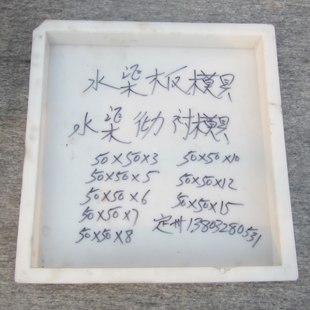 水渠板模具
水渠彻衬模具
50×50×3 50×50×10
50×50×5 50×50×12
50×50×6 50×50×15
50×50×7 定州13803280531
50×50×8